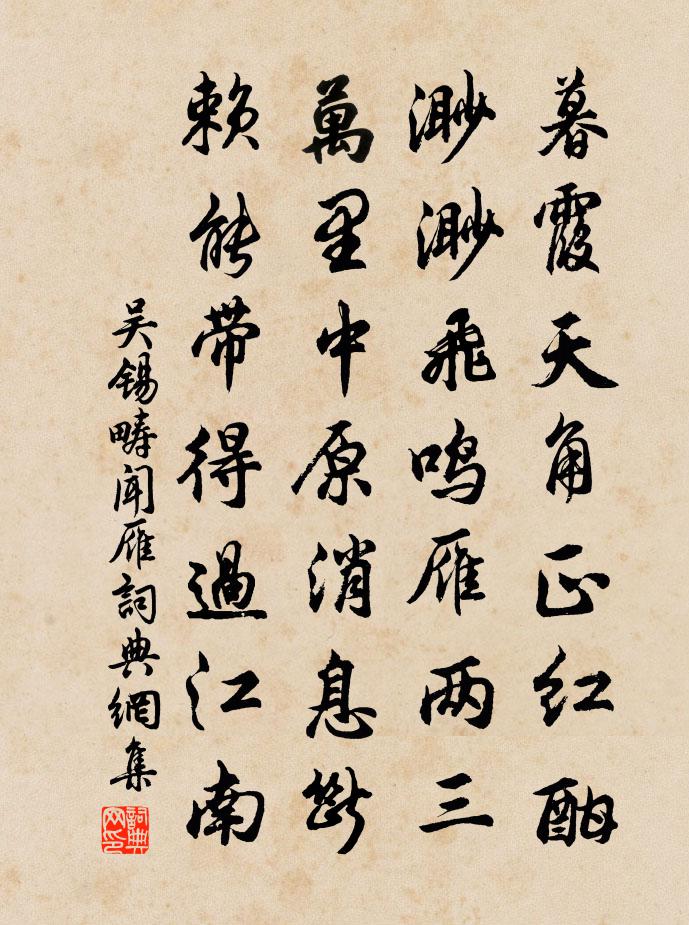 暮霞天角正红酣
渺渺飛鸣雁两三
萬里中原消息断
赖能帶得過江南
吴锡畴闻雁詞典網集
詞典网印